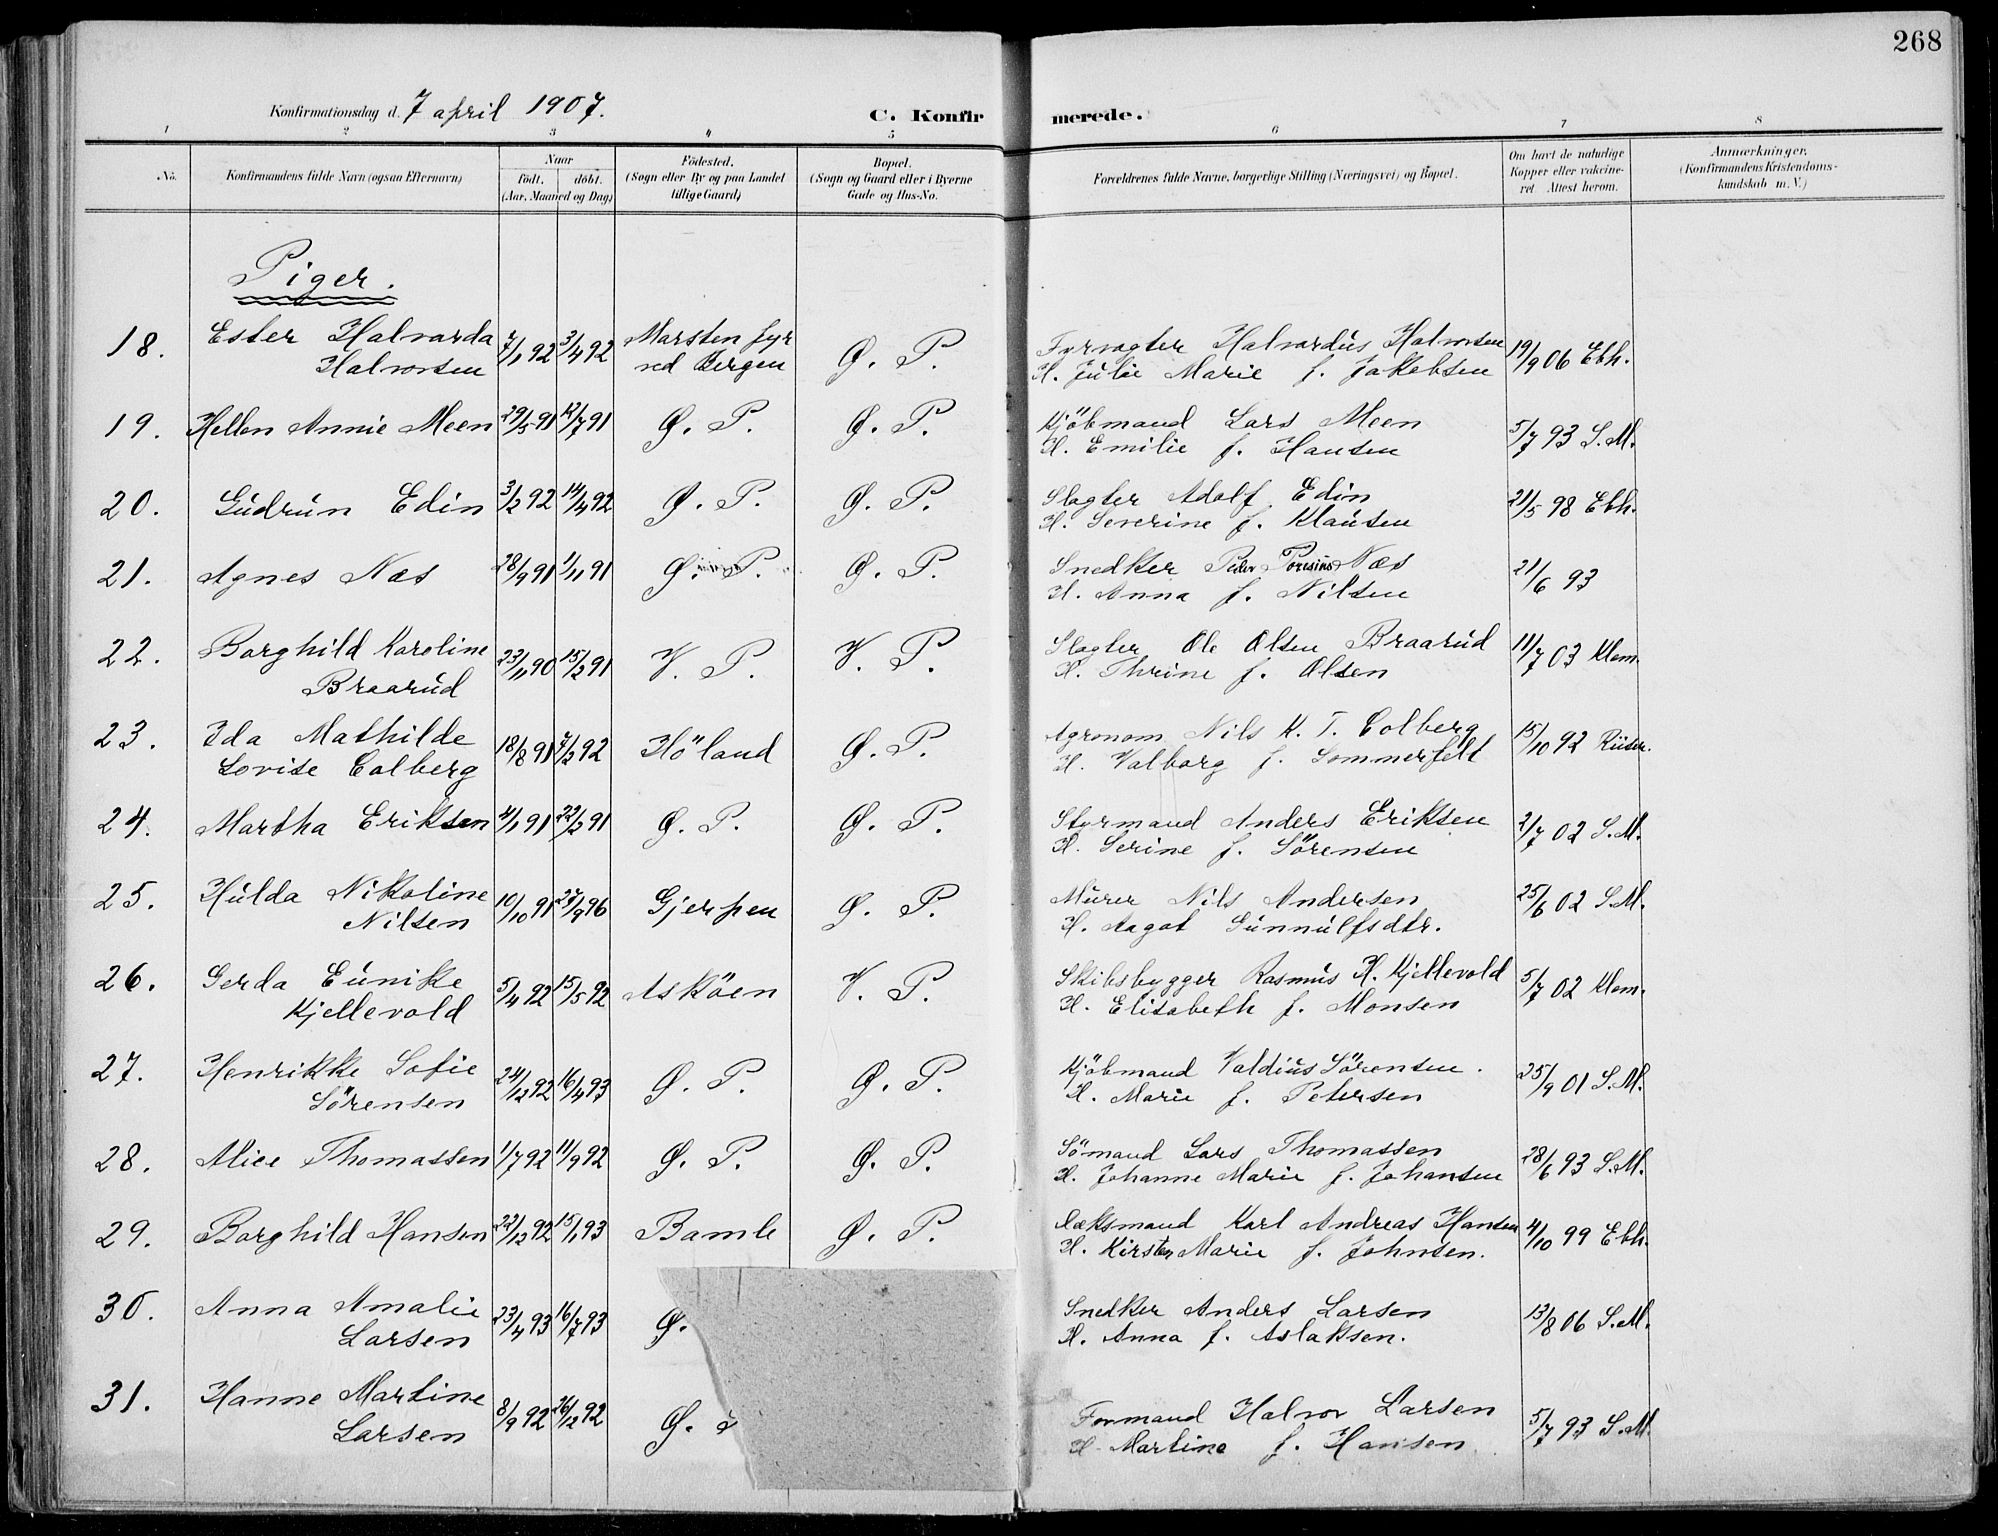 268
Konfirmationsdag d. 7 april 1907.
C. Konfirmerede.
1 2 3 4 5 6 7 8
No.
Konfirmandens fulde Navn (ogsaa Efternavn)
Naar
födt. döbt.
(Aar, Maaned og Dag)
Födested.
(Sogn eller By og paa Landet
tillige Gaard)
Bopæl.
(Sogn og Gaard eller i Byerne
Gade og Hus-No.
Forældrenes fulde Navne, borgerlige Stilling (Næringsvei) og Bopæl.
Om havt de naturlige
Kopper eller vakcine-
ret Attest herom.
Anmærkninger.
(Konfirmandens Kristendoms-
kundskab m. V.)
Piger.
18. Ester Halvarda 7/1 92 3/4 92 Marsten fyr Ø. P. Fyrvogter Halvardus Halvorsen 19/9 06 Ebh.
Halvorsen ved Bergen H. Julie Marie f. Jakobsen
19. Hellen Annie Meen 29/5 91 12/7 91 Ø. P. Ø. P. Kjöbmand Lars Meen 5/7 93 S. M.
H. Emilie f. Hansen
20. Gudrun Edin 3/2 92 14/4 92 Ø. P. Ø. P. Slagter Adolf Edin 21/5 98 Ebh.
H. Severine f. Klausen
21. Agnes Næs 28/9 91 1/11 91 Ø. P. Ø. P. Snedker Peder Næs 21/6 93
H. Anna f. Nilsen
22. Borghild Karoline 23/11 90 15/2 91 V. P. V. P. Slagter Ole Olsen Braarud 11/7 03 Klem.
Braarud H. Thrine f. Olsen
23. Ida Mathilde 18/8 91 7/2 92 Höland Ø. P. Agronom Nils K. T. Colberg 15/10 92
Lovise Colberg H. Valborg f. Sommerfelt
24. Martha Eriksen 4/1 91 22/2 91 Ø. P. Ø. P. Styrmand Anders Eriksen 2/7 02 S. M.
H. Serine f. Sörensen
25. Hulda Nikoline 10/10 91 27/9 96 Gjerpen Ø. P. Murer Nils Andersen 25/6 02 S. M.
Nilsen H. Aagot Gunnulfsdtr.
26. Gerda Eunike 5/4 92 15/5 92 Asköen V. P. Skibsbygger Rasmus H. Kjellevold 5/7 02 Klem.
Kjellevold H. Elisabeth f. Monsen
27. Henrikke Sofie 24/12 92 16/4 93 Ø. P. Ø. P. Kjöbmand Valdius Sörensen. 25/9 01 S. M.
Sörensen H. Marie f. Petersen
28. Alice Thomassen 1/7 92 11/9 92 Ø. P. Ø. P. Sömand Lars Thomassen 28/6 93 S. M.
H. Johanne Marie f. Johansen
29. Borghild Hansen 22/12 92 15/1 93 Bamle Ø. P. Karl Andreas Hansen 4/10 99 Ebh.
H. Kirsten Marie f. Johnsen.
30. Anna Amalie 23/4 93 16/7 93 Ø. Snedker Anders Larsen 13/8 06 S. M.
Larsen H. Anna f. Aslaksen.
31. Hanne Martine 8/9 92 26/12 92 Ø. Formand Halvor Larsen 5/7 93 S. M.
Larsen H. Martine f. Hansen.